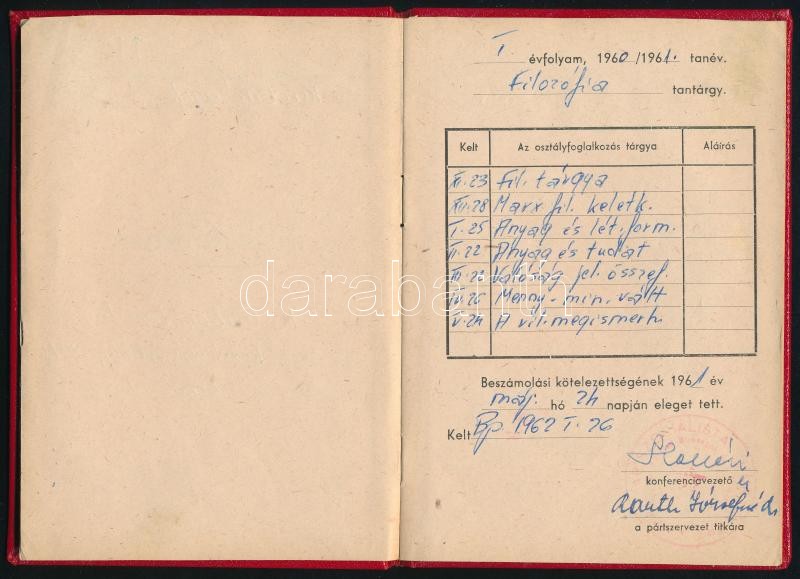 I. évfolyam, 1960/1961. tanév.
Filozófia tantárgy.
Kelt Az osztályfoglalkozás tárgya Aláírás
XI. 23 Fil. tárgya
XII. 28 Marx fil. keletk.
I. 25 Anyag és lét. form.
II. 22 Anyag és tudat
III. 22 Valóság jel. összef.
IV. 26 Menny - min. vált
V. 24 A vil. megismerh.
darabanth
Beszámolási kötelezettségének 1961 év
máj. hó 24 napján eleget tett.
Kelt Bp 1962 I. 26
konferenciavezető
a pártszervezet titkára